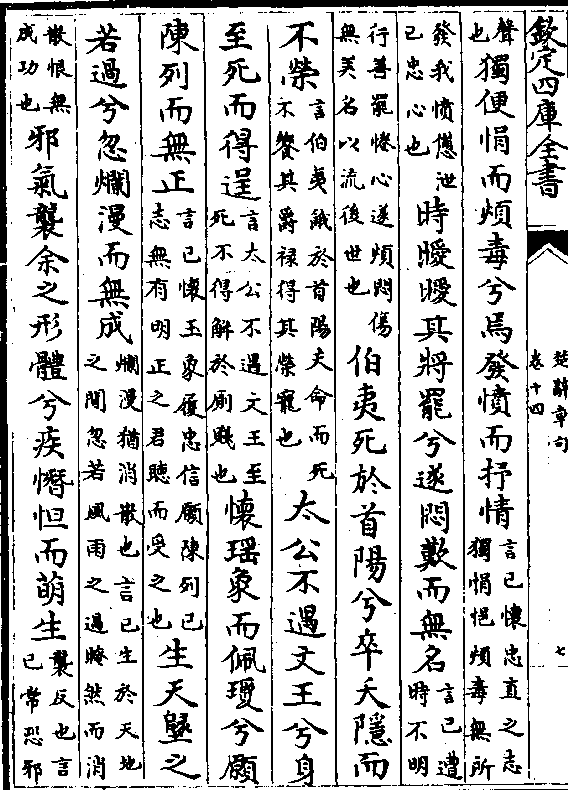 欽定四庫全書
楚辭章句
卷十四
七
聲也獨便悁而煩毒兮焉發憤而抒情言已懷忠直之志獨悁悒煩毒無所
發我憤懣泄已忠心也時曖曖其將罷兮遂悶歎而無名言已遭時不明
行善罷倦心遂煩悶傷無美名以流後世也伯夷死於首陽兮卒夭隱而
不榮言伯夷餓於首陽夭命而死不饗其爵祿得其榮寵也太公不遇文王兮身
至死而得逞言太公不遇文王至死不得解於厠賤也懷瑶象而佩瓊兮願
陳列而無正言已懷玉象履忠信願陳列已志無有明正之君聽而受之也生天墬之
若過兮忽爛漫而無成爛漫猶消散也言已生於天地之間忽若風雨之過晻然而消
散恨無成功也邪氣襲余之形體兮疾憯怛而萌生襲反也言已常恐邪